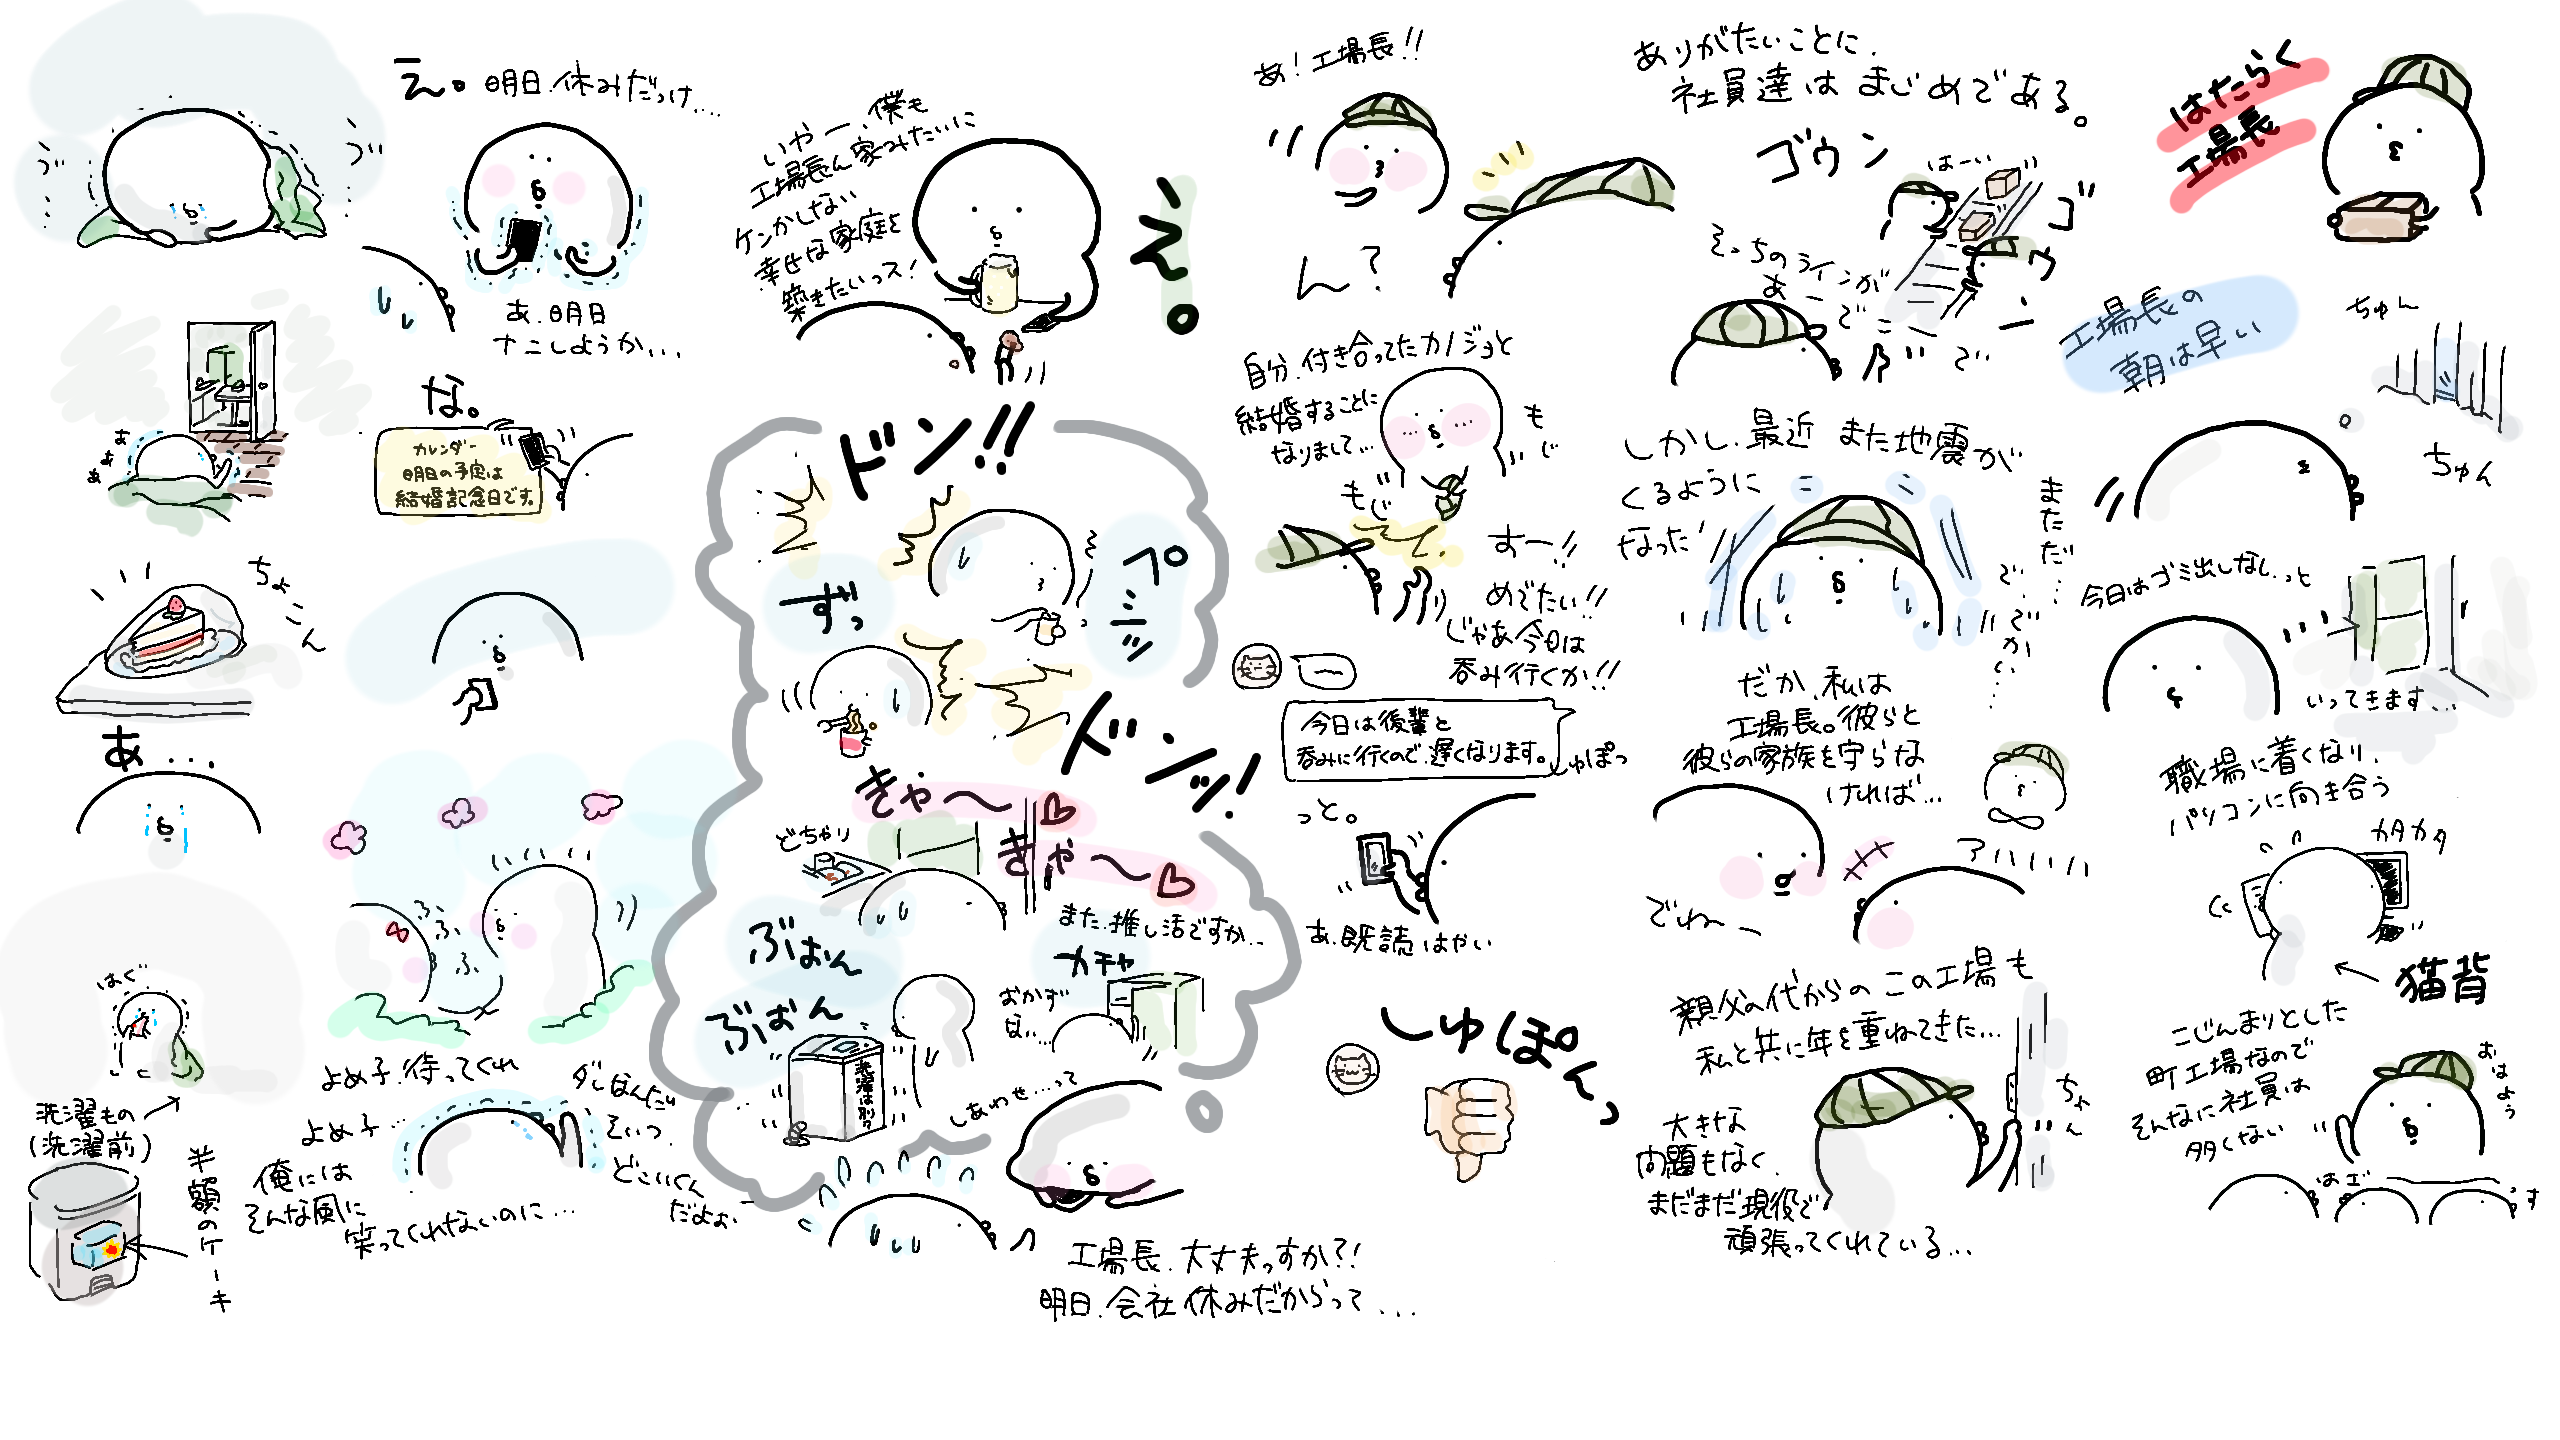 はたらく
工場長
工場長の
朝は早い
ちゅん
ちゅん
今日はゴミ出しなしっと
いってきます...
職場に着くなり、
パソコンに向き合う
カタカタ
猫背
こじんまりとした
町工場なので
そんなに社員は
多くない
おはよう
はざーっす
ありがたいことに、
社員達はまじめである。
ゴウン
ゴウンー
はーい
そっちのラインが
あーで
こーで
しかし、最近また地震が
くるように
なった
まただ...
で、でかい...
だが、私は
工場長。彼らと
彼らの家族を守らな
ければ...
でねー
アハハハ
親父の代からのこの工場も
私と共に年を重ねてきた...
ちゃん
大きな
問題もなく、
まだまだ現役で
頑張ってくれている...
あ!工場長!!
ん?
自分、付き合ってたカノジョと
結婚することに
なりまして...
もじ
もじ
めでてー!!
めでたい!!
じゃあ今日は
呑み行くか!!
今日は後輩と
呑みに行くので、遅くなります。
しゅぽっ
っと。
あ、既読はやい
しゅぽんっ
いやー、僕も
工場長ん家みたいに
ケンカしない
幸せな家庭を
築きたいっス!
え。
ドン!!
ペシッ
ずっ
ドンッ!
きゃ〜♡
きゃ〜♡
どちゃり
また、推し活ですか...
ぶぉん
ぶぉん
カチャ
おかず
は...
洗濯は別々
しあわせ...って
工場長、大丈夫っすか?!
明日、会社休みだからって...
え。明日、休みだっけ...
あ、明日
ナニしようか...
な。
カレンダー
明日の予定は
結婚記念日です。
ふふふ
よめ子、待ってくれ
よめ子...
ダレなんだい
そいつ
どこいくん
だよぉ
俺には
そんな風に
笑ってくれないのに...
う゛
う゛
あぁぁ
ちょこん
あ...
はぐ
洗濯もの
(洗濯前)
半額のケーキ